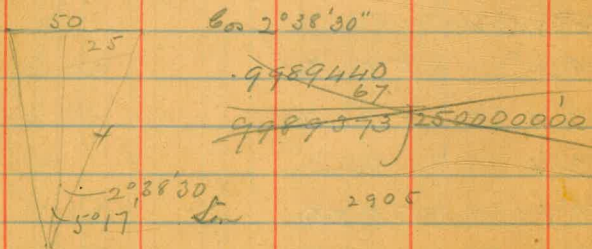 50
25
Cos 2°38'30"
.9989440
67
9989373)250000000
x
2°38'30
5°17'
Sin
2905